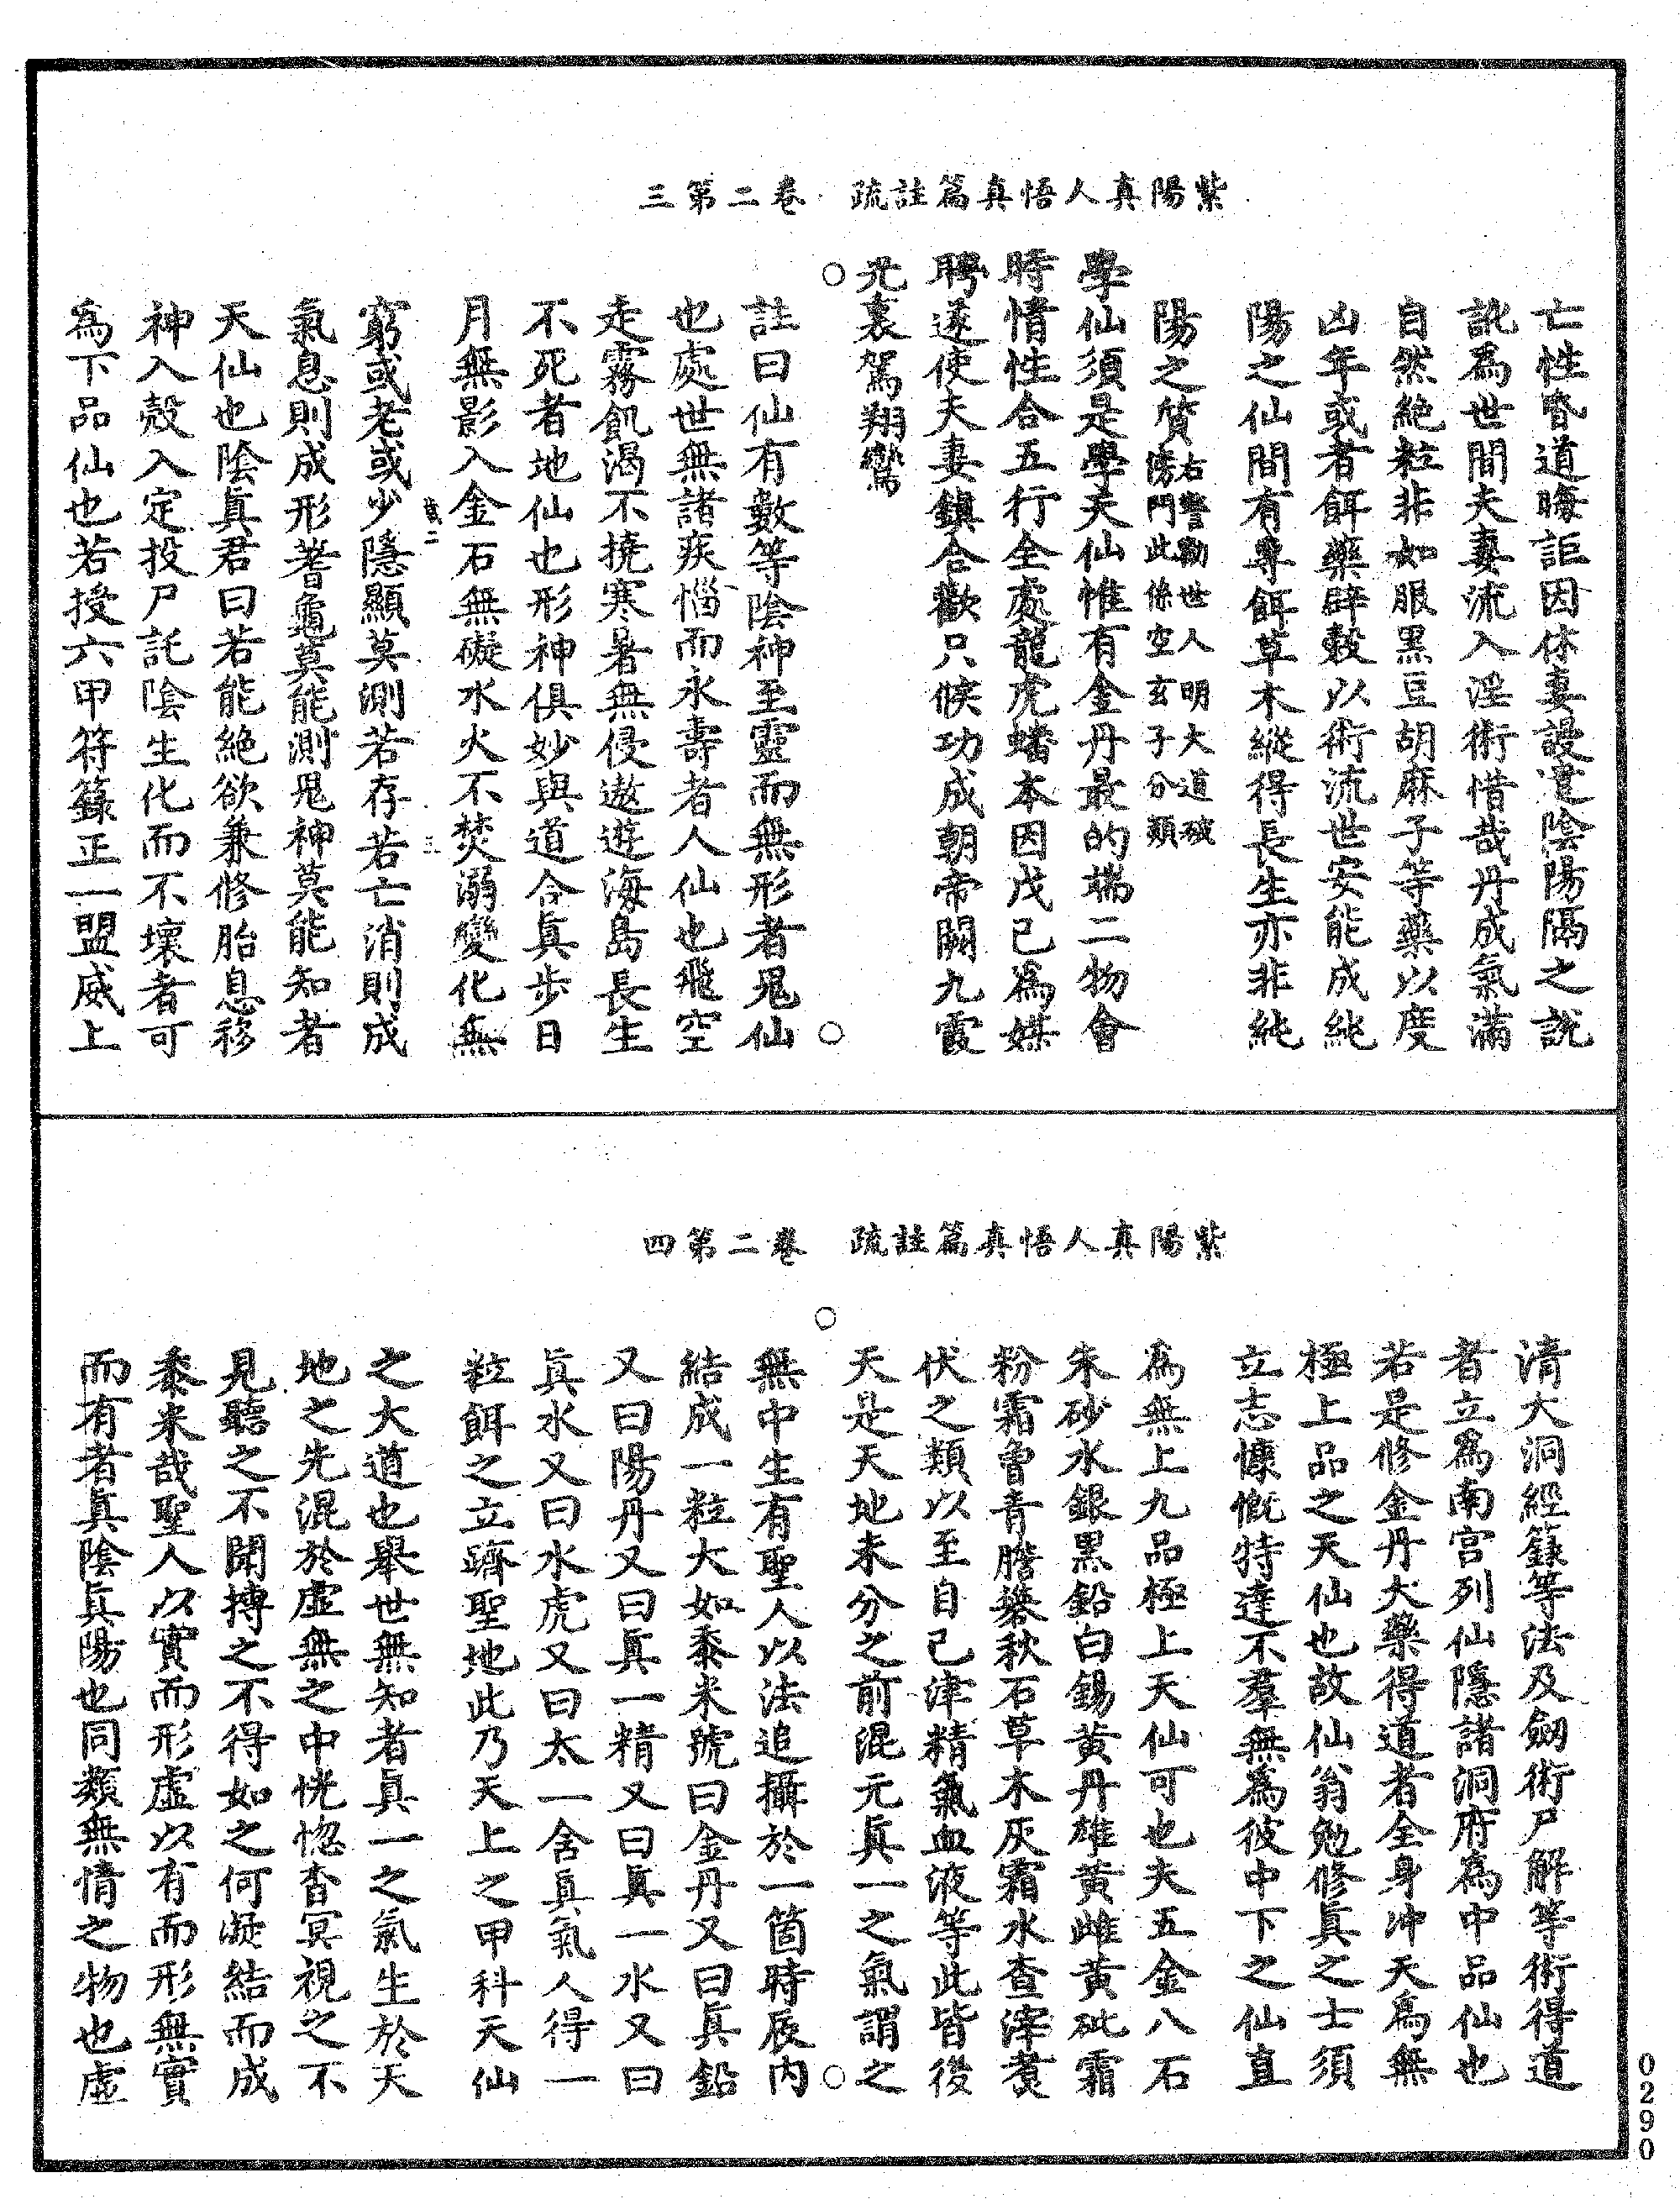 紫陽真人悟真篇註疏　卷二第三
亡性昏道晦詎因休妻謾遣陰陽隔之說
訛爲世間夫妻流入淫術惜哉丹成氣滿
自然絕粒非如服黑豆胡麻子等藥以度
凶年或者餌藥辟穀以術流世安能成純
陽之仙間有專餌草木縱得長生亦非純
陽之質右警勸世人明大道破
傍門此係空玄子分類
學仙須是學天仙惟有金丹最的端二物會
時情性合五行全處龍虎蟠本因戊已爲媒
聘遂使夫妻鎮合歡只候功成朝帝闕九霞
光裏駕翔鸞
註曰仙有數等陰神至靈而無形者鬼仙
也處世無諸疾惱而永壽者人仙也飛空
走霧飢渴不撓寒暑無侵遨遊海島長生
不死者地仙也形神俱妙與道合眞步日
月無影入金石無礙水火不焚溺變化無
二　三
窮或老或少隱顯莫測若存若亡消則成
氣息則成形蓍龜莫能測鬼神莫能知者
天仙也陰眞君曰若能絕欲兼修胎息移
神入殼入定投尸託陰生化而不壞者可
爲下品仙也若授六甲符籙正一盟威上
紫陽真人悟真篇註疏　卷二第四
清大洞經籙等法及劒術尸解等術得道
者立爲南宫列仙隱諸洞府爲中品仙也
若是修金丹大藥得道者全身冲天爲無
極上品之天仙也故仙翁勉修眞之士須
立志慷慨特達不羣無爲彼中下之仙直
爲無上九品極上天仙可也夫五金八石
朱砂水銀黑鉛白錫黄丹雄黄雌黄砒霜
粉霜曾青膽礬秋石草木灰霜水查滓煑
伏之類以至自己津精氣血液等此皆後
天是天地未分之前混元眞一之氣謂之
無中生有聖人以法追攝於一箇時辰内
結成一粒大如黍米號曰金丹又曰眞鉛
又曰陽丹又曰眞一精又曰眞一水又曰
眞水又曰水虎又曰太一含眞氣人得一
粒餌之立躋聖地此乃天上之甲科天仙
之大道也舉世無知者眞一之氣生於天
地之先混於虛無之中恍惚杳冥視之不
見聽之不聞摶之不得如之何凝結而成
黍米哉聖人以實而形虛以有而形無實
而有者眞陰眞陽也同類無情之物也虛
0290